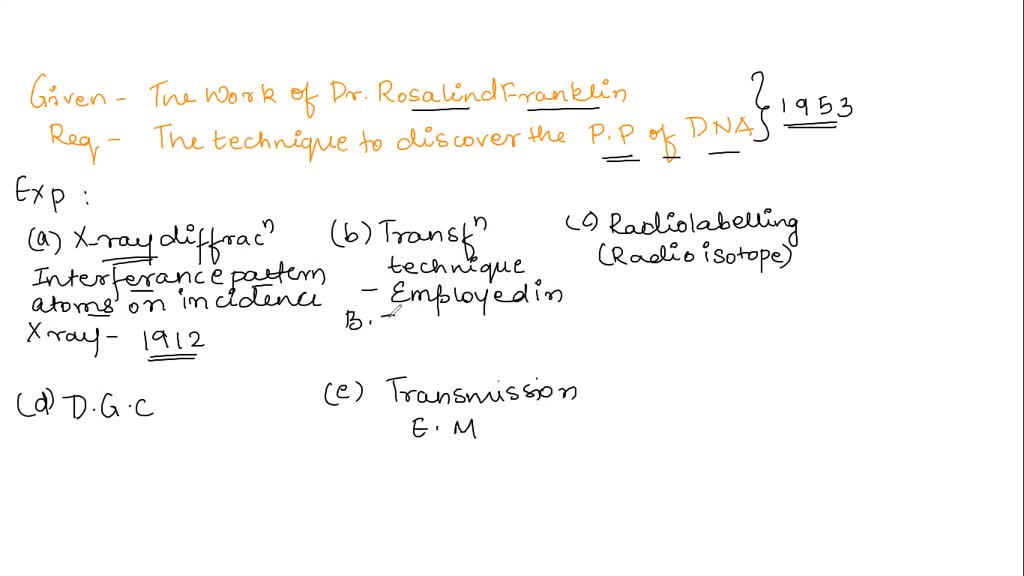 Given - The work of Dr. Rosalind Franklin
Req - The technique to discover the P.P of DNA } 1953
Exp :
(a) X-ray diffracⁿ
Interferance pattern
atoms on incidence
X ray - 1912
(b) Transfⁿ
technique
- Employed in
B. -
(c) Radiolabelling
(Radio isotope)
(d) D.G.C
(e) Transmission
E. M